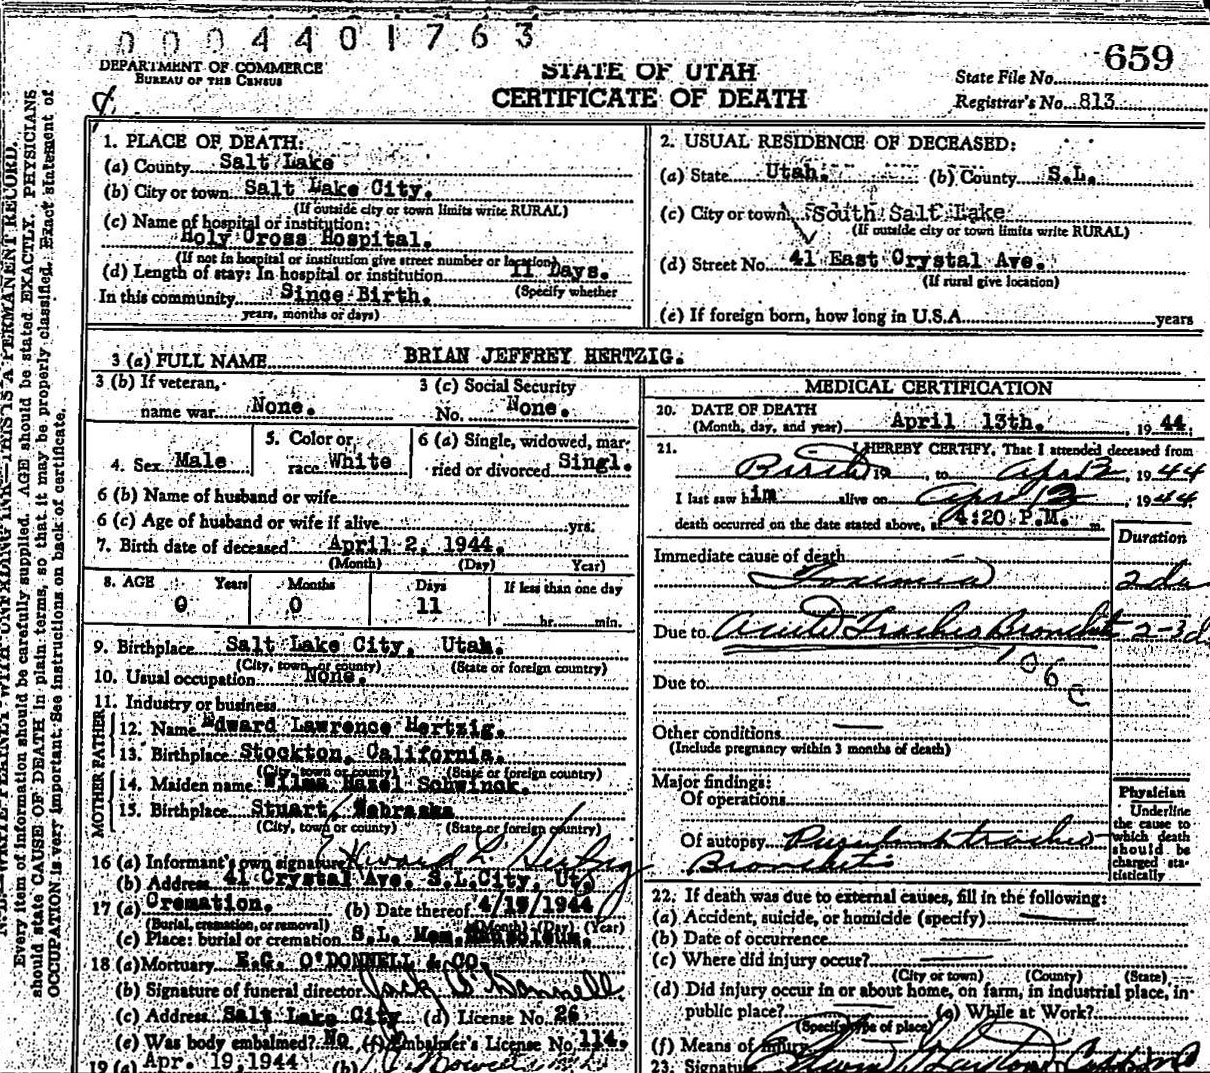 0004401763
659
DEPARTMENT OF COMMERCE
BUREAU OF THE CENSUS
STATE OF UTAH
CERTIFICATE OF DEATH
State File No.
Registrar's No. 813
N. B.—WRITE PLAINLY WITH UNFADING INK—THIS IS A PERMANENT RECORD.
Every item of information should be carefully supplied. AGE should be stated EXACTLY. PHYSICIANS
should state CAUSE OF DEATH in plain terms, so that it may be properly classified. Exact statement of
OCCUPATION is very important. See instructions on back of certificate.
1. PLACE OF DEATH:
(a) County Salt Lake
(b) City or town Salt Lake City.
(If outside city or town limits write RURAL)
(c) Name of hospital or institution:
Holy Cross Hospital.
(If not in hospital or institution give street number or location)
(d) Length of stay: In hospital or institution 11 Days.
(Specify whether
In this community Since Birth.
years, months or days)
2. USUAL RESIDENCE OF DECEASED:
(a) State Utah. (b) County S.L.
(c) City or town South Salt Lake
(If outside city or town limits write RURAL)
(d) Street No. 41 East Crystal Ave.
(If rural give location)
(e) If foreign born, how long in U.S.A. years
3 (a) FULL NAME BRIAN JEFFREY HERTZIG.
3 (b) If veteran, name war None.
3 (c) Social Security No. None.
4. Sex Male
5. Color or race White
6 (a) Single, widowed, married or divorced Singl.
6 (b) Name of husband or wife
6 (c) Age of husband or wife if alive yrs.
7. Birth date of deceased April 2, 1944.
(Month) (Day) Year)
8. AGE Years Months Days If less than one day
0 0 11 hr. min.
9. Birthplace Salt Lake City, Utah.
(City, town, or county) (State or foreign country)
10. Usual occupation None.
11. Industry or business
FATHER
12. Name Edward Lawrence Hertzig.
13. Birthplace Stockton, California.
(City, town or county) (State or foreign country)
MOTHER
14. Maiden name Wilma Hazel Schwinck.
15. Birthplace Stuart, Nebraska
(City, town or county) (State or foreign country)
16 (a) Informant's own signature Edward L. Hertzig
(b) Address 41 Crystal Ave. S.L.City, Ut.
17 (a) Cremation. (b) Date thereof 4/15/1944
(Burial, cremation, or removal) (Month) (Day) (Year)
(c) Place: burial or cremation S.L. Mem. Mausoleum.
18 (a) Mortuary E.G. O'DONNELL & CO.
(b) Signature of funeral director Jack O'Donnell
(c) Address Salt Lake City (d) License No. 26
(e) Was body embalmed? No (f) Embalmer's License No. 114.
19 (a) Apr. 19, 1944 (b)
MEDICAL CERTIFICATION
20. DATE OF DEATH
(Month, day, and year) April 13th. , 1944.
21. I HEREBY CERTIFY, That I attended deceased from
Birth 19 , to Apr 13, 1944
I last saw him alive on Apr 13 , 1944
death occurred on the date stated above, at 4:20 P.M. m.
Duration
Immediate cause of death
Toxemia 2 da
Due to Acute Tracheo Bronchitis 2-3 d
106 c
Due to
Other conditions
(Include pregnancy within 3 months of death)
Major findings:
Of operations
Of autopsy Purulent tracheo
Bronchitis
Physician
Underline
the cause to
which death
should be
charged sta-
tistically
22. If death was due to external causes, fill in the following:
(a) Accident, suicide, or homicide (specify)
(b) Date of occurrence
(c) Where did injury occur?
(City or town) (County) (State)
(d) Did injury occur in or about home, on farm, in industrial place, in
public place? (e) While at Work?
(Specify type of place)
(f) Means of Injury
23. Signature